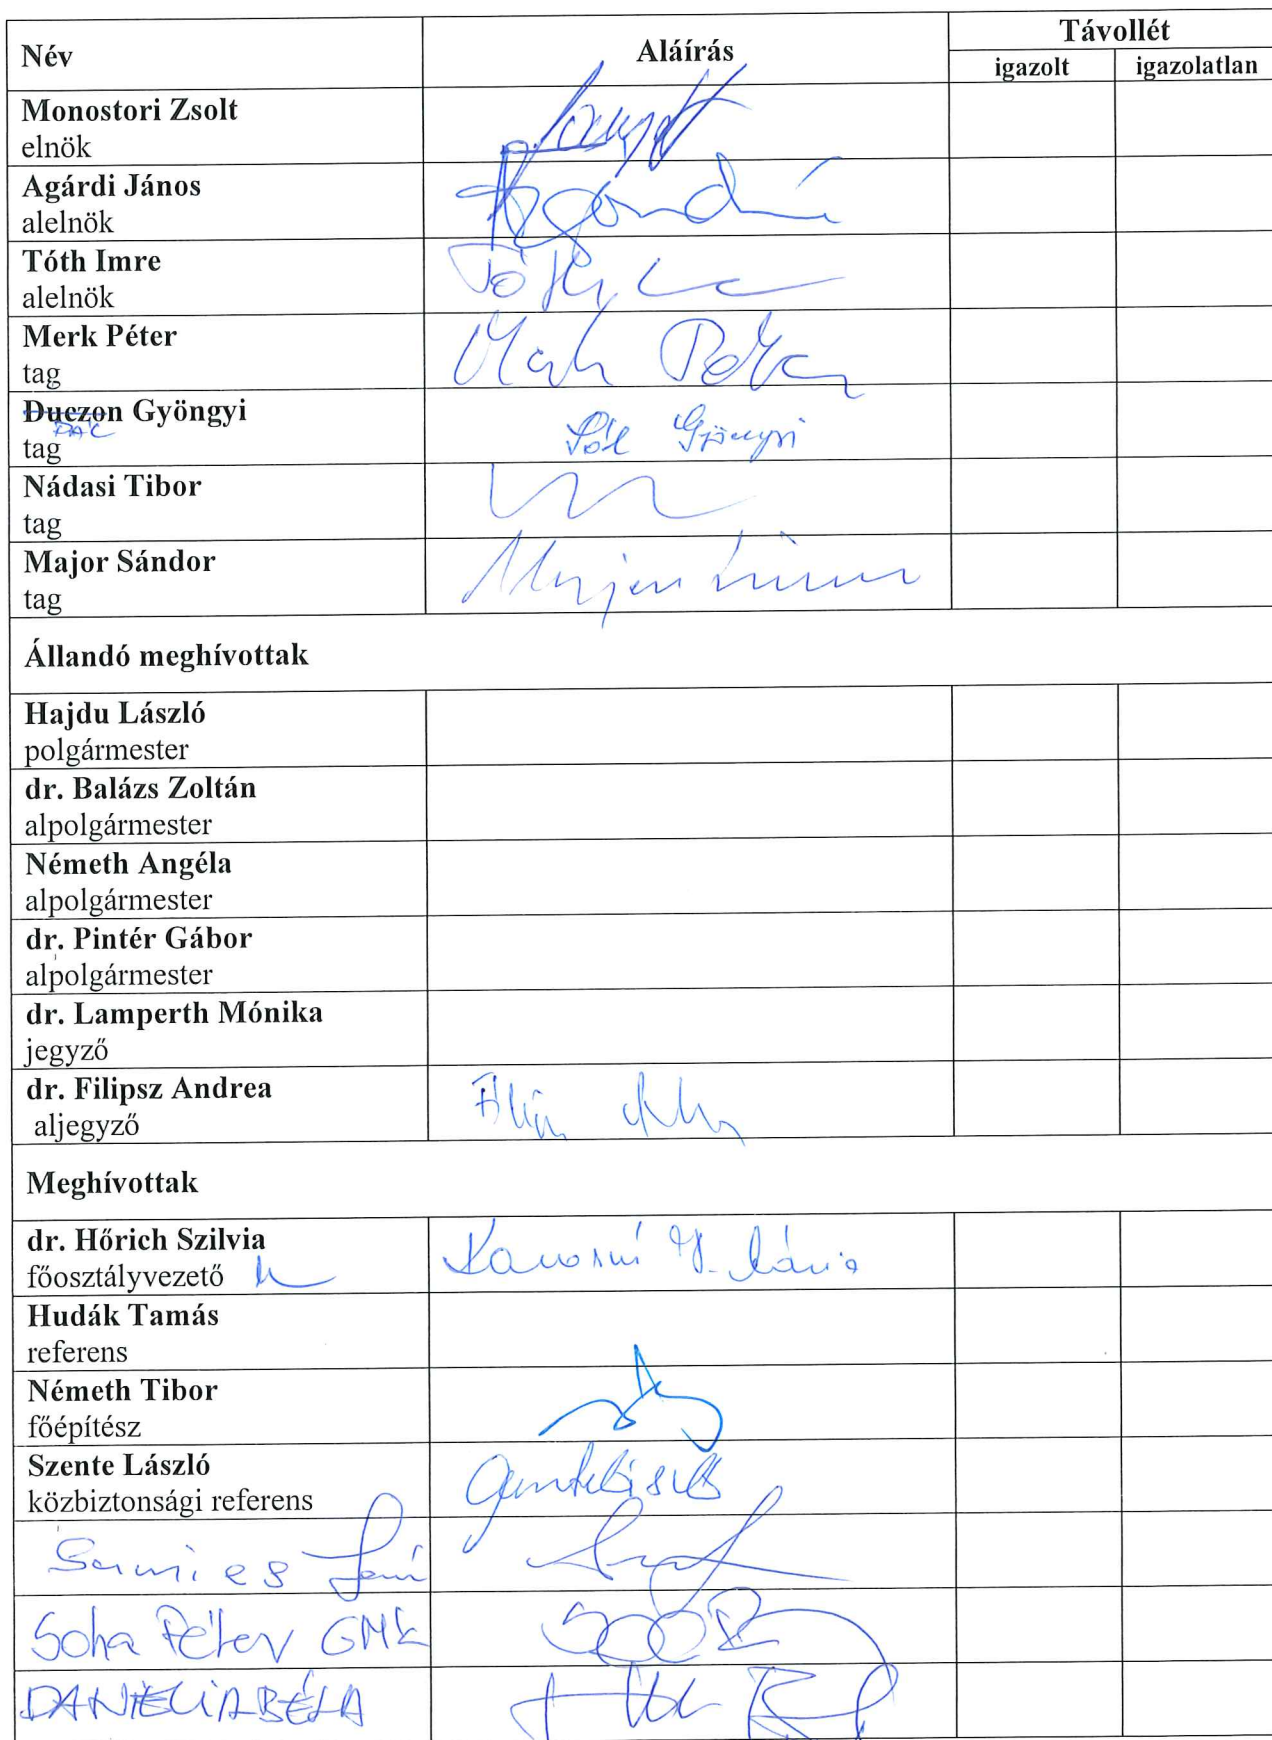 Név Aláírás Távollét
igazolt igazolatlan
Monostori Zsolt
elnök
Agárdi János
alelnök
Tóth Imre
alelnök
Merk Péter Merk Péter
tag
Duczon Gyöngyi
PÁL Pál Gyöngyi
tag
Nádasi Tibor
tag
Major Sándor
tag
Állandó meghívottak
Hajdu László
polgármester
dr. Balázs Zoltán
alpolgármester
Németh Angéla
alpolgármester
dr. Pintér Gábor
alpolgármester
dr. Lamperth Mónika
jegyző
dr. Filipsz Andrea
aljegyző
Meghívottak
dr. Hőrich Szilvia
főosztályvezető
Hudák Tamás
referens
Németh Tibor
főépítész
Szente László
közbiztonsági referens
Soha Péter GMK
BÉLA